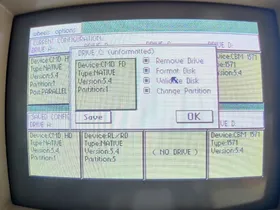 options
CURRENT CONFIGURATION
DRIVE A:
DRIVE D:
Device:CMD HD
Type:NATIVE
Version:5.4
Partition:1
Port:PARALLEL
DRIVE C: (unformatted)
Device:CMD HD
Type:NATIVE
Version:5.4
Partition:1
Remove Drive
Format Disk
Validate Disk
Change Partition
Save
OK
Device:CBM 1571
Type:1571
Version:5.4
SAVED CONFIG
DRIVE A:
Device:CMD HD
Type:NATIVE
Version:5.4
Partition:1
Device:RL/RD
Type:NATIVE
Version:5.4
Partition:1
( NO DRIVE )
DRIVE D:
Device:CBM 1571
Type:1571
Version:5.4